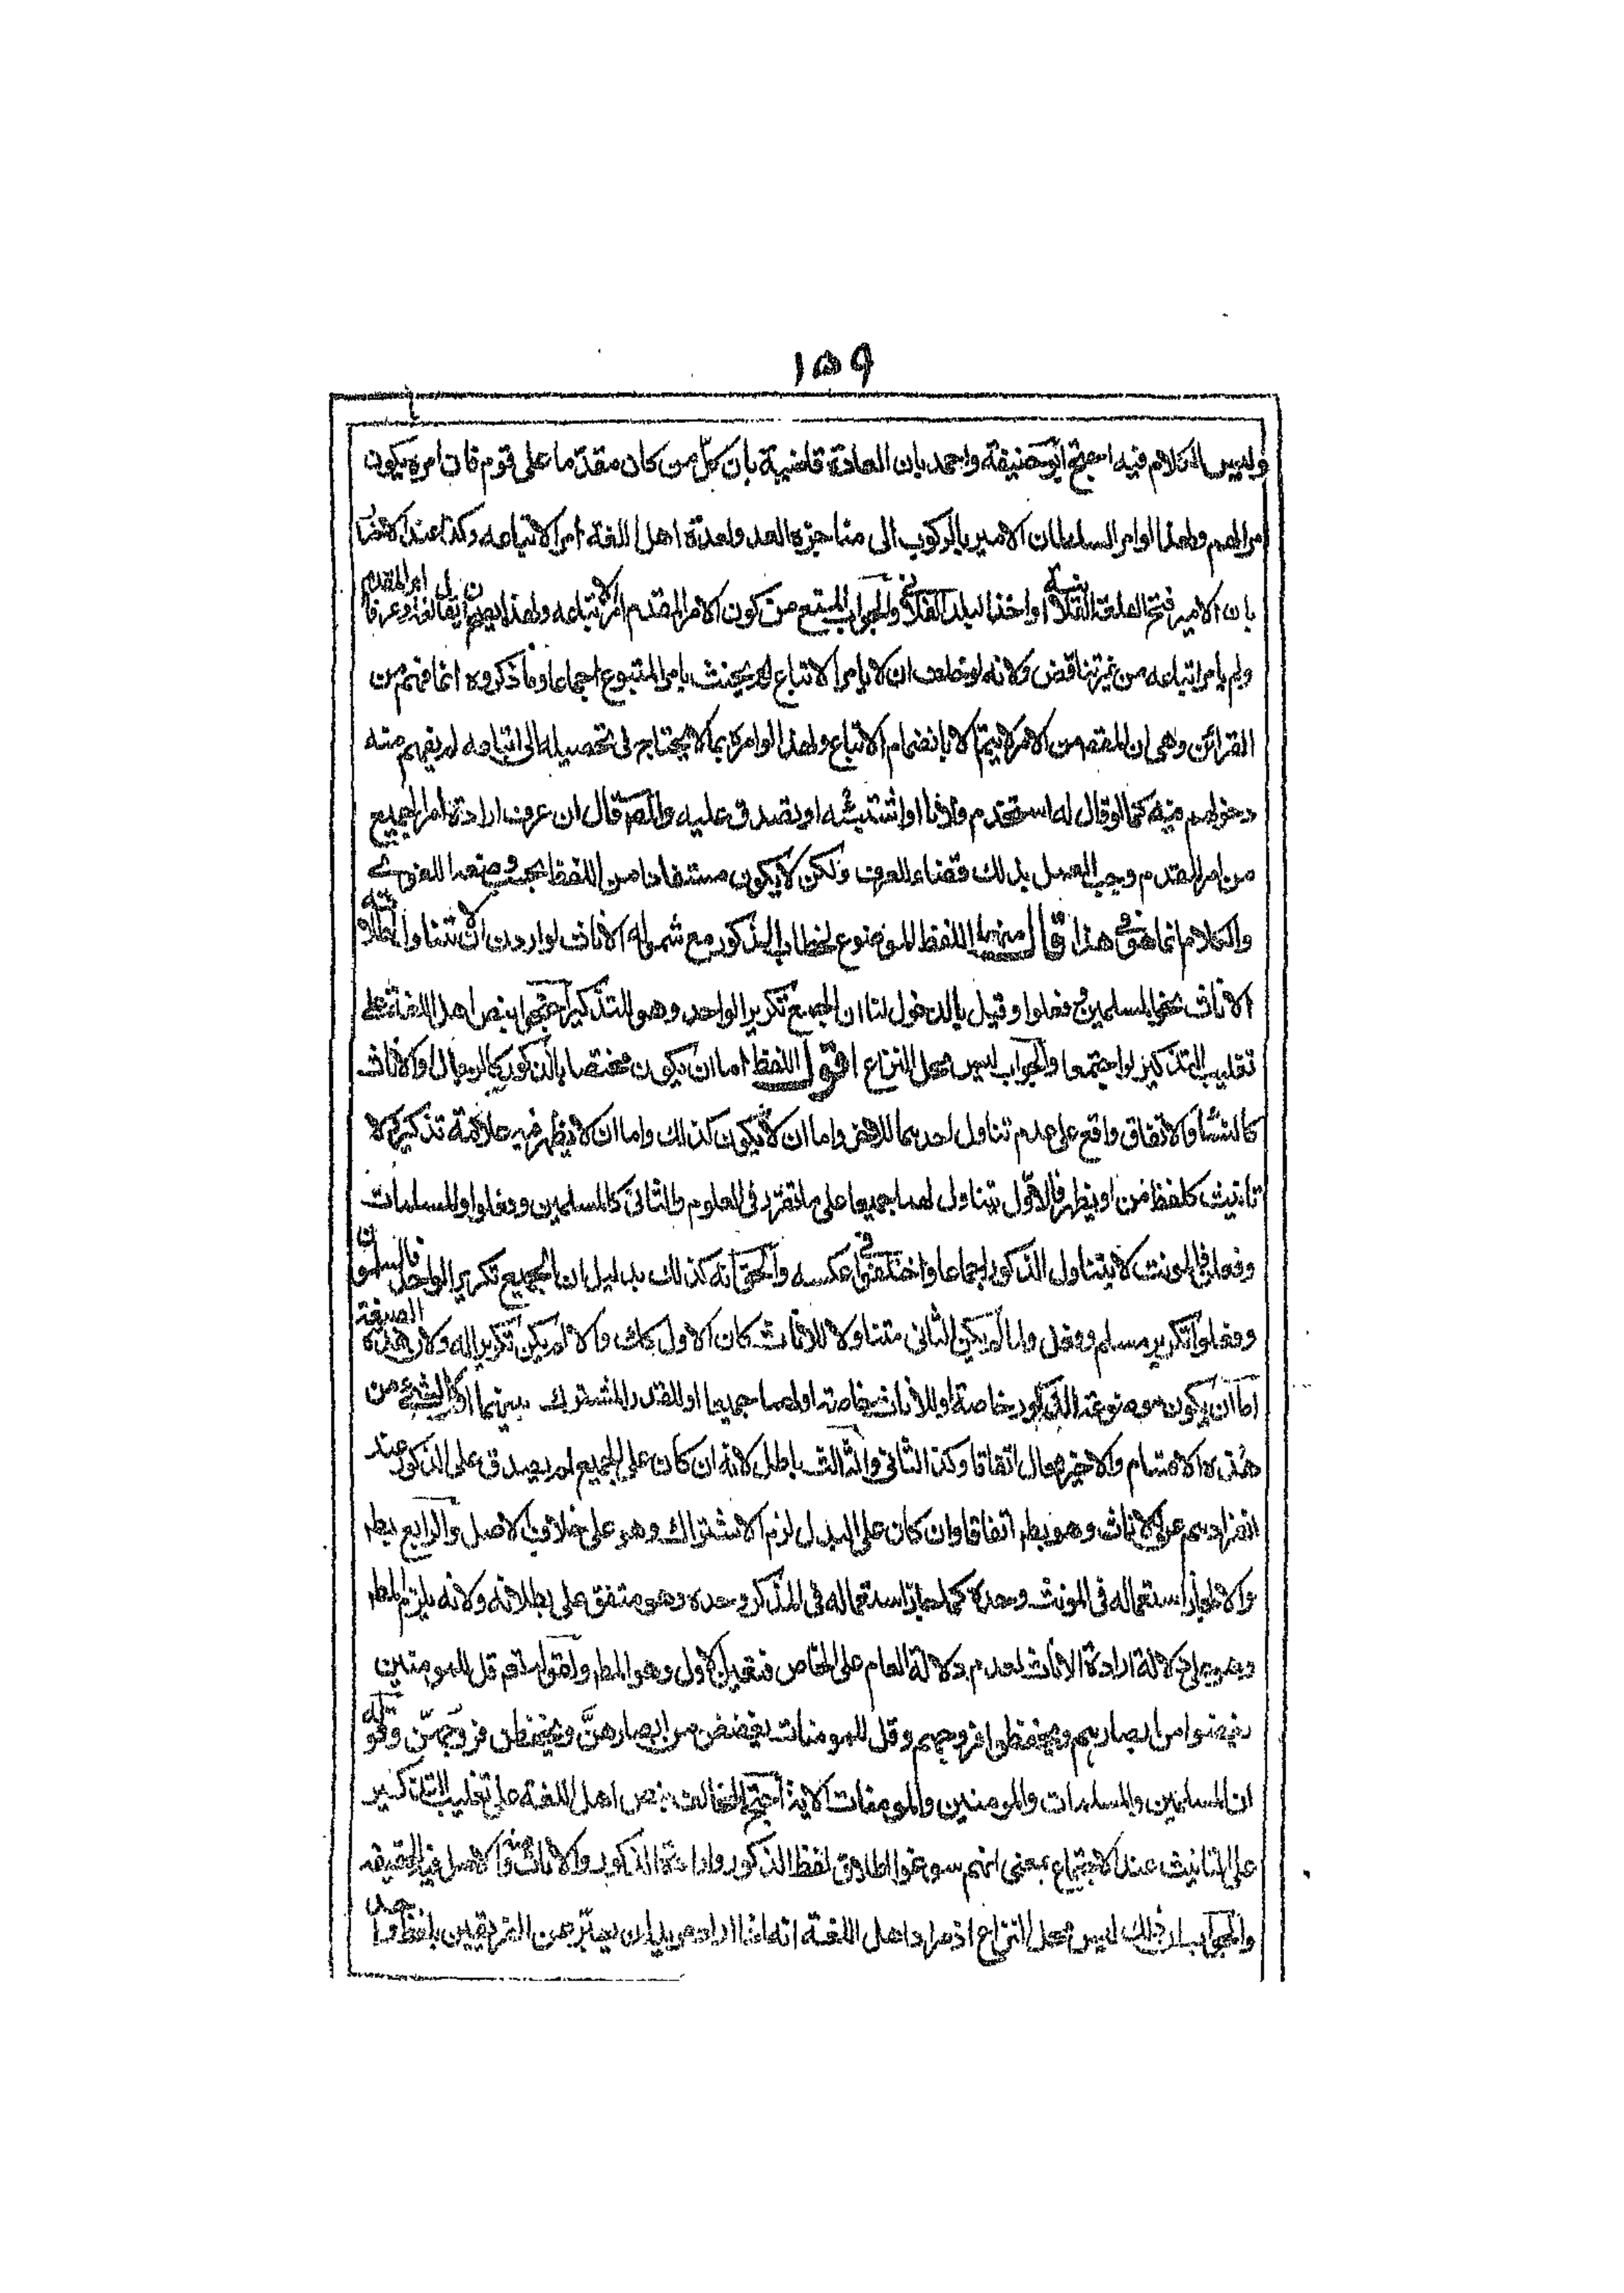 ١٥٩
وليس الكلام فيه احتج ابوحنيفة واحمد بان العادة قاضية بان كل من كان مقدما على قوم فان امره يكون
امرا لهم ولهذا لو امر السلطان الامير بالركوب الى مناجزة العدو لعدة اهل اللغة امرا لاتباعه وكذا عند الاخبار
بان الامير فتح القلعة الفلانية او اخذ البلد الفلاني والجواب المنع من كون الامر للمقدم امرا لاتباعه ولهذا يصح ان يقال لغة وعرفا امر المقدم
ولم يامر اتباعه من غير تناقض ولانه لو حلف ان لا يامر الاتباع لم يحنث بامر المتبوع اجماعا وما ذكروه انما فهم من
القرائن وهي ان المقصود من الامر لا يتم الا بانضمام الاتباع ولهذا لو امره بما لا يحتاج في تحصيله الى اتباعه لم يفهم منه
دخولهم فيه كما لو قال له استخدم فلانا او اشتبشه او تصدق عليه والمصنف قال ان عرف ارادة امر الجميع
من امر المقدم وجب العمل بذلك قضاء للعرف ولكن لا يكون مستفادا من اللفظ بحسب وضعه اللغوي
والكلام انما هو في هذا قال منها اللفظ الموضوع لخطاب الذكور مع شموله الاناث لو اردن لا يتناول بطلاقه
الاناث نحو المسلمين وفعلوا وقيل بالدخول لنا ان الجمع تكرير الواحد وهو للتذكير احتجوا بنص اهل اللغة على
تغليب التذكير لو اجتمعا والجواب ليس محل النزاع اقول اللفظ اما ان يكون مختصا بالذكور كالرجال او الاناث
كالنساء والاتفاق واقع على عدم تناول احدهما للاخر واما ان لا يكون كذلك واما ان لا يظهر فيه علامة تذكير ولا
تانيث كلفظ من او يظهر فالاول يتناول لهما جميعا على ما تقرر في العلوم والثاني كالمسلمين وفعلوا والمسلمات
وفعلن في المونث لا يتناول الذكور اجماعا واختلفوا في عكسه والحق انه كذلك بدليل ان الجميع تكرير الواحد فالمسلمون
وفعلوا تكرير مسلم وفعل ولما لم يكن الثاني متناولا للاناث كان الاول كك والا لم يكن تكريرا له ولان هذه الصيغة
اما ان يكون موضوعة للذكور خاصة او للاناث خاصة او لهما جميعا او للقدر المشترك بينهما او لا لشيء من
هذه الاقسام والاخير محال اتفاقا وكذا الثاني والثالث باطل لانه ان كان على الجميع لم يصدق على الذكور عند
انفرادهم عن الاناث وهو بط اتفاقا وان كان على البدل لزم الاشتراك وهو على خلاف الاصل والرابع بط
والا لجاز استعماله في المونث وحده كما جاز استعماله في المذكر وحده وهو متفق على بطلانه ولانه يلزم المط
وهو عدم دلالة ارادة الاناث لعدم دلالة العام على الخاص فتعين الاول وهو المط ولقوله تعم قل للمومنين
يغضوا من ابصارهم ويحفظوا فروجهم وقل للمومنات يغضضن من ابصارهن ويحفظن فروجهن وقوله
ان المسلمين والمسلمات والمومنين والمومنات الاية احتج المخالف بنص اهل اللغة على تغليب التذكير
على التانيث عند الاجتماع بمعنى انهم سوغوا اطلاق لفظ الذكور وارادة الذكور والاناث منه والاصل فيه الحقيقة
والجواب ان ذلك ليس محل النزاع اذ مراد اهل اللغة انه اذا اراد مريد ان يعبر عن الفريقين بلفظ واحد